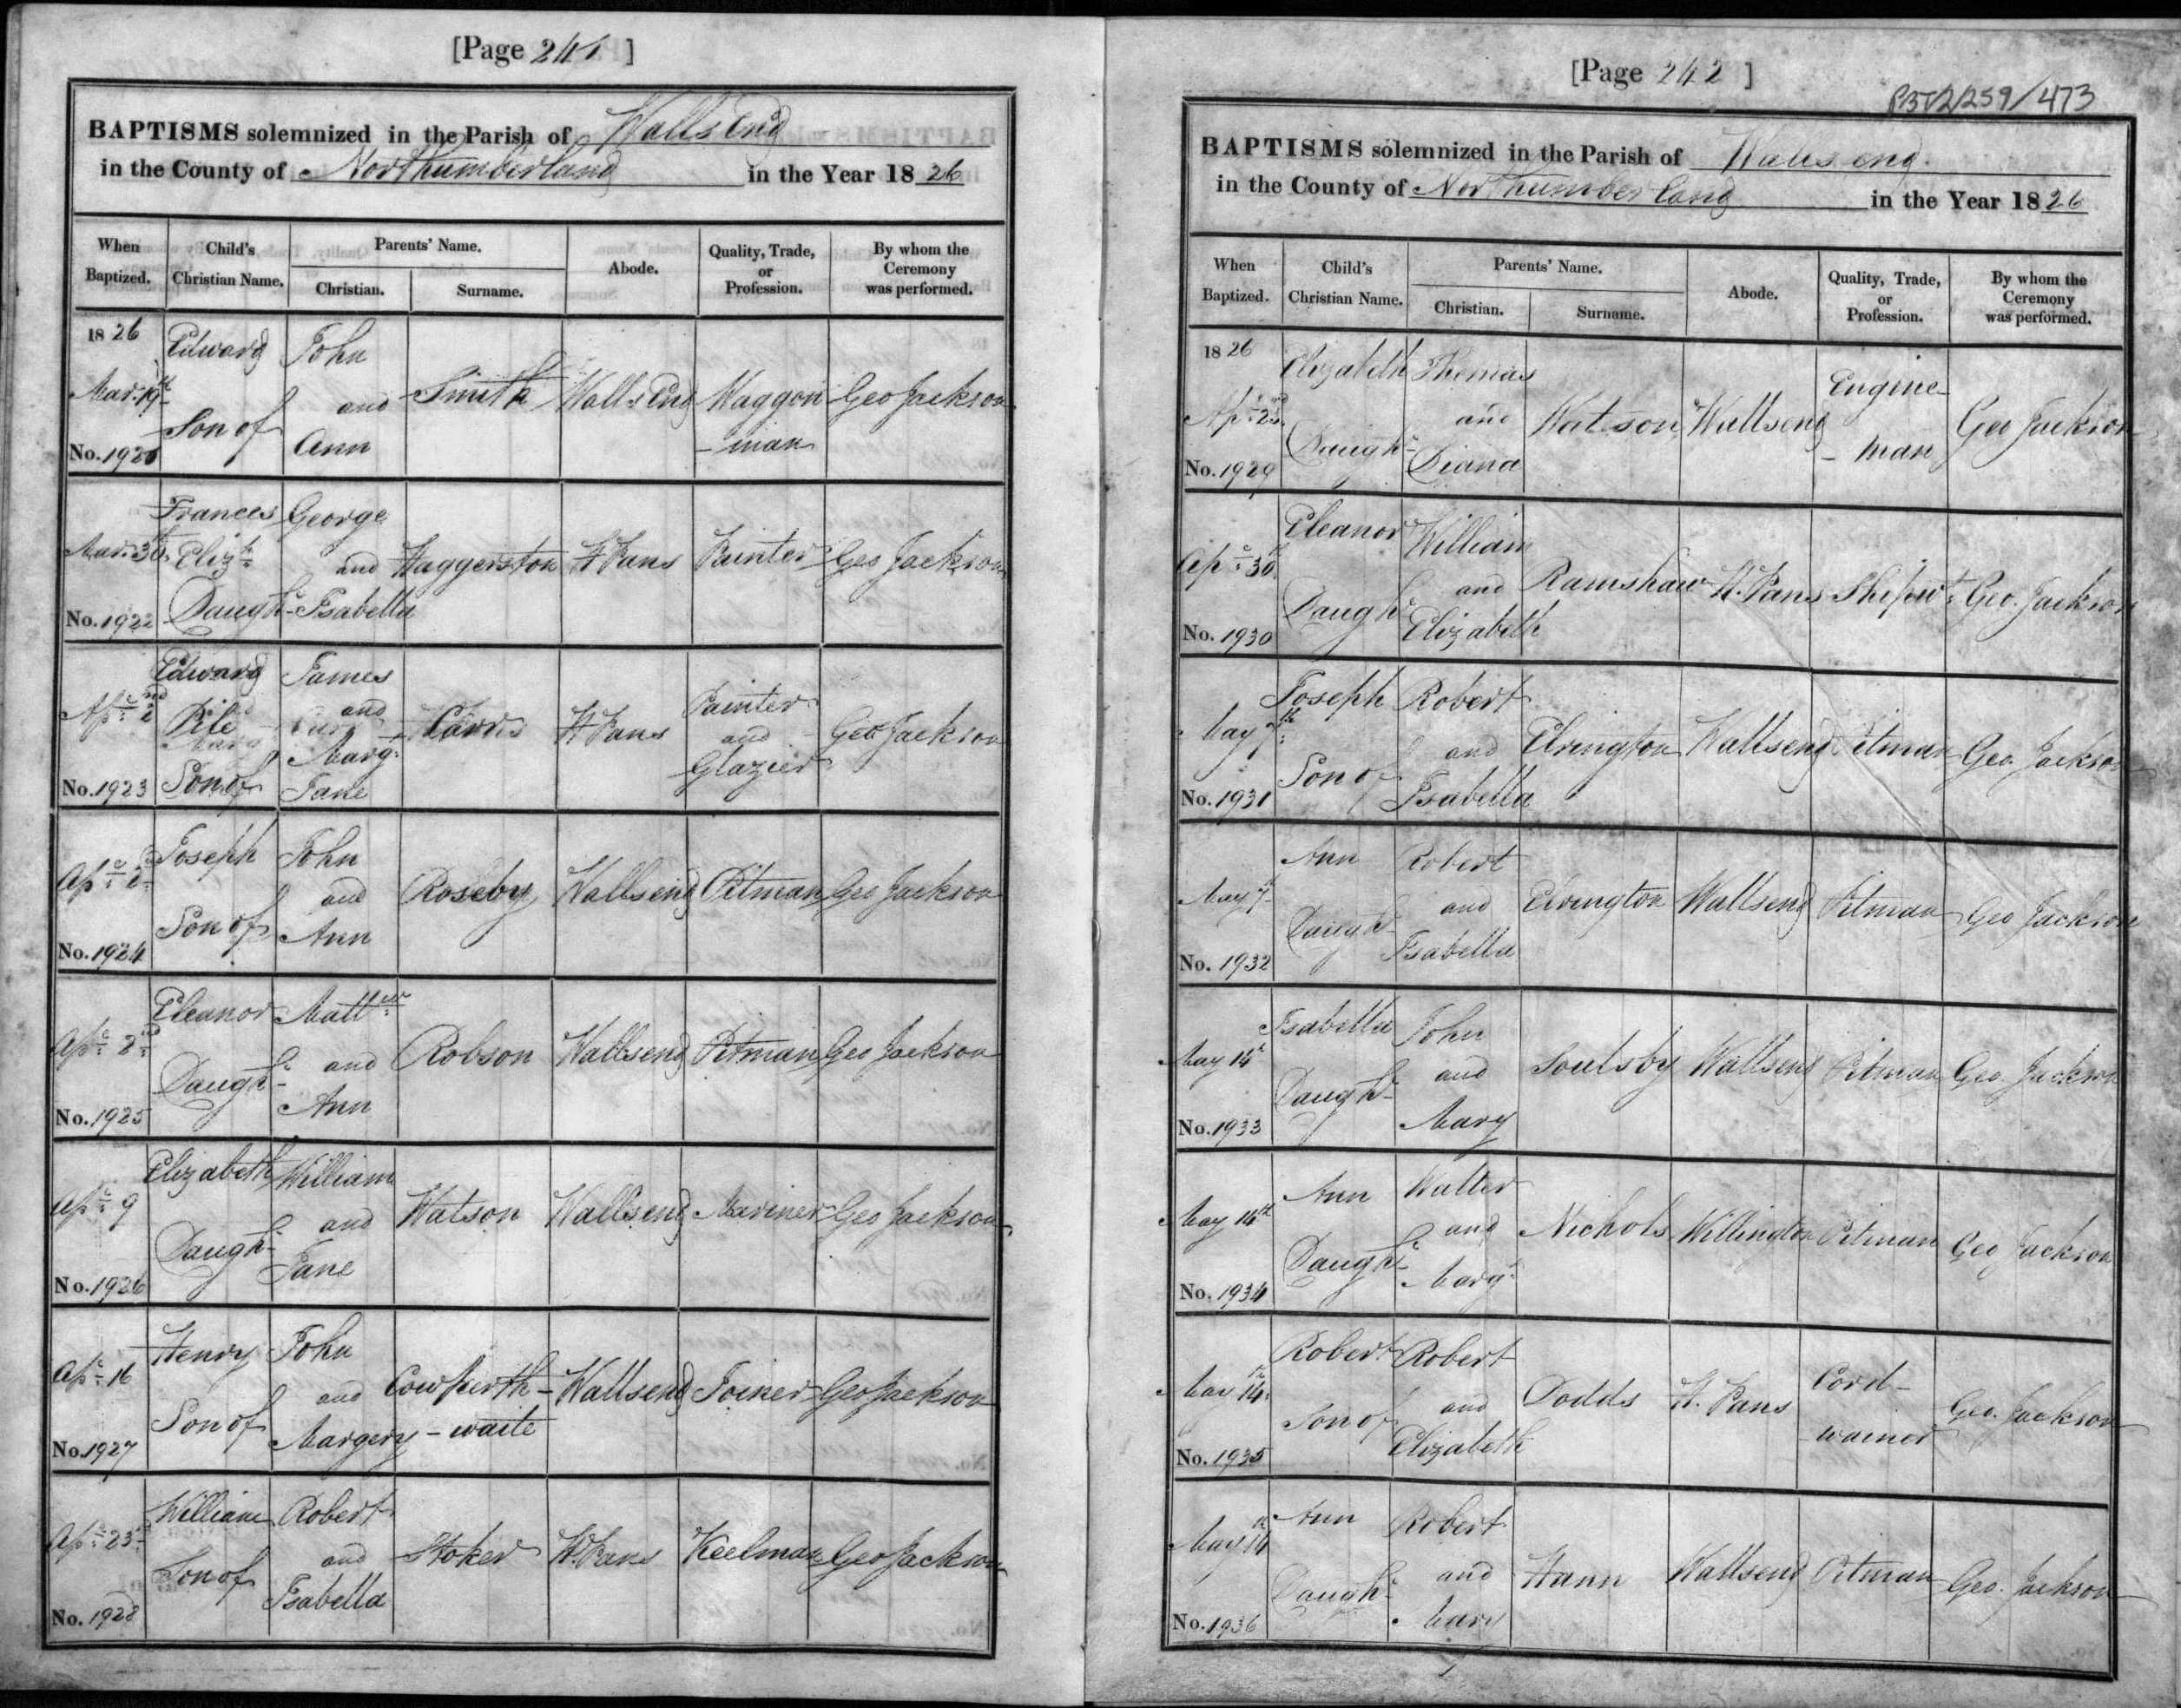 [Page 241]
BAPTISMS solemnized in the Parish of Walls End
in the County of Northumberland in the Year 1826
When Baptized. Child's Christian Name. Parents' Name. Christian. Surname. Abode. Quality, Trade, or Profession. By whom the Ceremony was performed.
1826
Mar. 19th
No. 1921
Edward
Son of
John
and
Ann
Smith
Walls End
Waggon
-man
Geo Jackson
Mar. 30
No. 1922
Frances
Elizth
Daughr
George
and
Isabella
Haggerston
H Pans
Painter
Geo Jackson
Apr 2nd
No. 1923
Edward
Pile
Son of
James
and
Margt
Jane
Carr
H Pans
Painter
and
Glazier
Geo Jackson
Apr 2
No. 1924
Joseph
Son of
John
and
Ann
Roseby
Wallsend
Pitman
Geo Jackson
Apr 2nd
No. 1925
Eleanor
Daughr
Mattw
and
Ann
Robson
Wallsend
Pitman
Geo Jackson
Apr 9
No. 1926
Elizabeth
Daughr
William
and
Jane
Watson
Wallsend
Mariner
Geo Jackson
Apr 16
No. 1927
Henry
Son of
John
and
Margery
Cowperth-
-waite
Wallsend
Joiner
Geo Jackson
Apr 23
No. 1928
William
Son of
Robert
and
Isabella
Stoker
H. Pans
Keelman
Geo Jackson
[Page 242]
P352/259/473
BAPTISMS solemnized in the Parish of Walls end.
in the County of Northumberland in the Year 1826
When Baptized. Child's Christian Name. Parents' Name. Christian. Surname. Abode. Quality, Trade, or Profession. By whom the Ceremony was performed.
1826
Apr 23
No. 1929
Elizabeth
Daughr
Thomas
and
Diana
Watson
Wallsend
Engine
-man
Geo Jackson
Apr 30
No. 1930
Eleanor
Daughr
William
and
Elizabeth
Ramshaw
H. Pans
Shipwt
Geo. Jackson
May 7th
No. 1931
Joseph
Son of
Robert
and
Isabella
Elrington
Wallsend
Pitman
Geo. Jackson
May 7
No. 1932
Ann
Daughr
Robert
and
Isabella
Elrington
Wallsend
Pitman
Geo Jackson
May 14
No. 1933
Isabella
Daughr
John
and
Mary
Soulsby
Wallsend
Pitman
Geo. Jackson
May 14th
No. 1934
Ann
Daughr
Walter
and
Margt
Nichols
Willington
Pitman
Geo Jackson
May 14th
No. 1935
Robert
Son of
Robert
and
Elizabeth
Dodds
H. Pans
Cord-
-wainer
Geo. Jackson
May 14th
No. 1936
Ann
Daughr
Robert
and
Mary
Hann
Wallsend
Pitman
Geo. Jackson